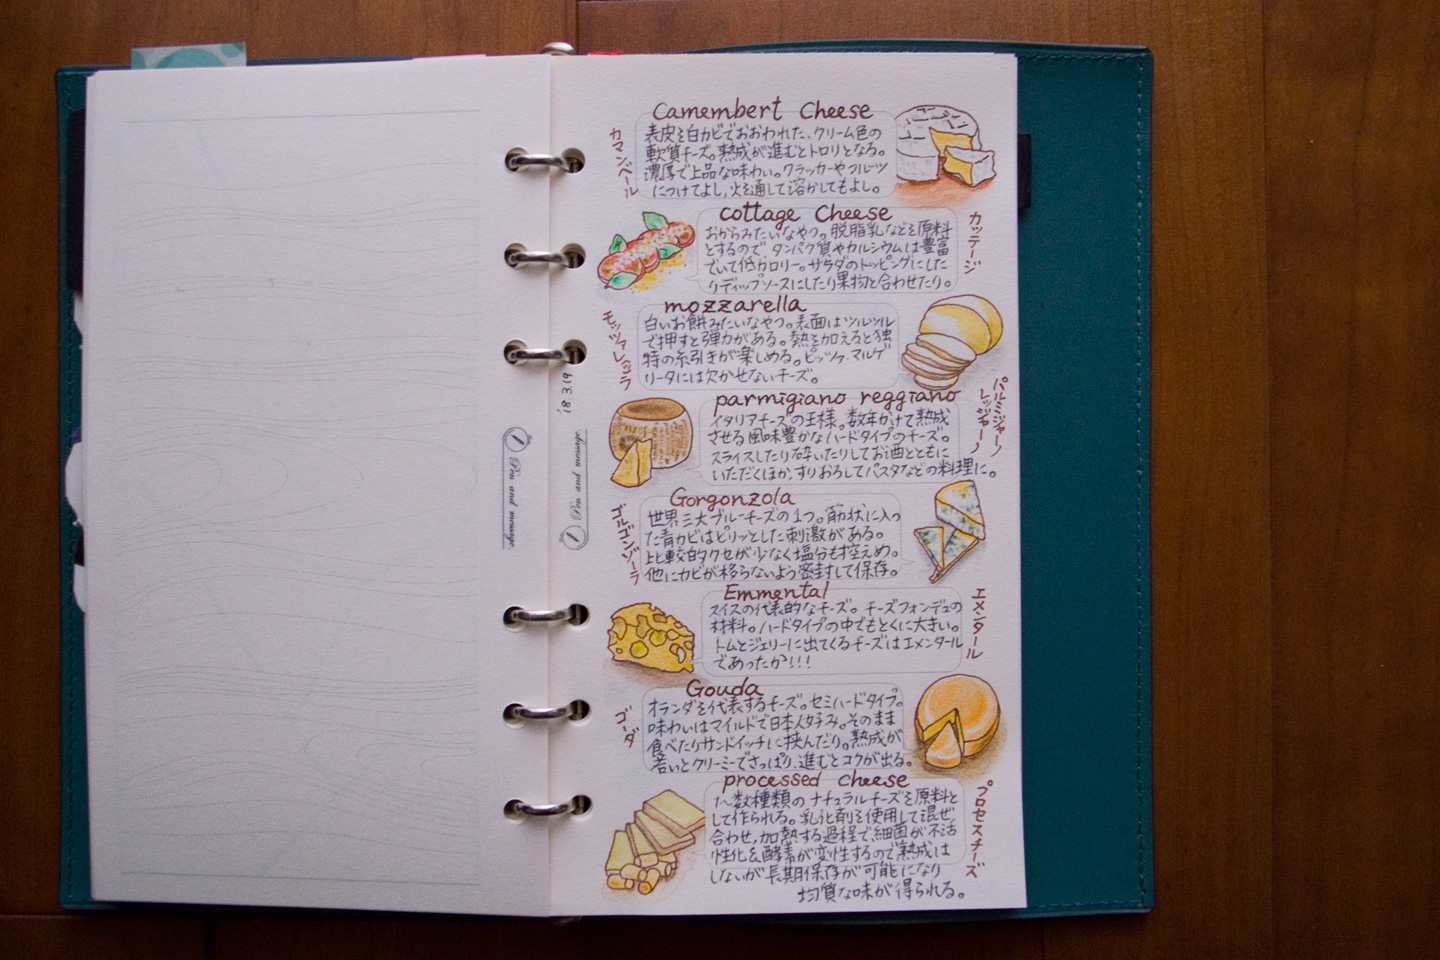 Camembert Cheese
カマンベール
表皮を白カビでおおわれた、クリーム色の
軟質チーズ。熟成が進むとトロリとなる。
濃厚で上品な味わい。クラッカーやフルーツ
につけてよし、火を通して溶かしてもよし。
cottage Cheese
カッテージ
おからみたいなやつ。脱脂乳などを原料
とするので、タンパク質やカルシウムは豊富
でいて低カロリー。サラダのトッピングにした
りディップソースにしたり果物と合わせたり。
mozzarella
モッツァレラ
白いお餅みたいなやつ。表面はツルツル
で押すと弾力がある。熱を加えると独
特の糸引きが楽しめる。ピッツァ・マルゲ
リータには欠かせないチーズ。
parmigiano reggiano
パルミジャーノ
レッジャーノ
イタリアチーズの王様。数年かけて熟成
させる風味豊かなハードタイプのチーズ。
スライスしたり砕いたりしてお酒とともに
いただくほか、すりおろしてパスタなどの料理に。
Gorgonzola
ゴルゴンゾーラ
世界三大ブルーチーズの1つ。筋状に入っ
た青カビはピリッとした刺激がある。
比較的クセが少なく塩分も控えめ。
他にカビが移らないよう密封して保存。
Emmental
エメンタール
スイスの代表的なチーズ。チーズフォンデュの
材料。ハードタイプの中でもとくに大きい。
トムとジェリーに出てくるチーズはエメンタール
であったか!!!
Gouda
ゴーダ
オランダを代表するチーズ。セミハードタイプ。
味わいはマイルドで日本人好み。そのまま
食べたりサンドイッチに挟んだり。熟成が
若いとクリーミーでさっぱり、進むとコクが出る。
processed cheese
プロセスチーズ
1〜数種類のナチュラルチーズを原料と
して作られる。乳化剤を使用して混ぜ
合わせ、加熱する過程で細菌が不活
性化&酵素が変性するので熟成は
しないが長期保存が可能になり
均質な味が得られる。
'18 3.19
Pen and message.
Pen and message.